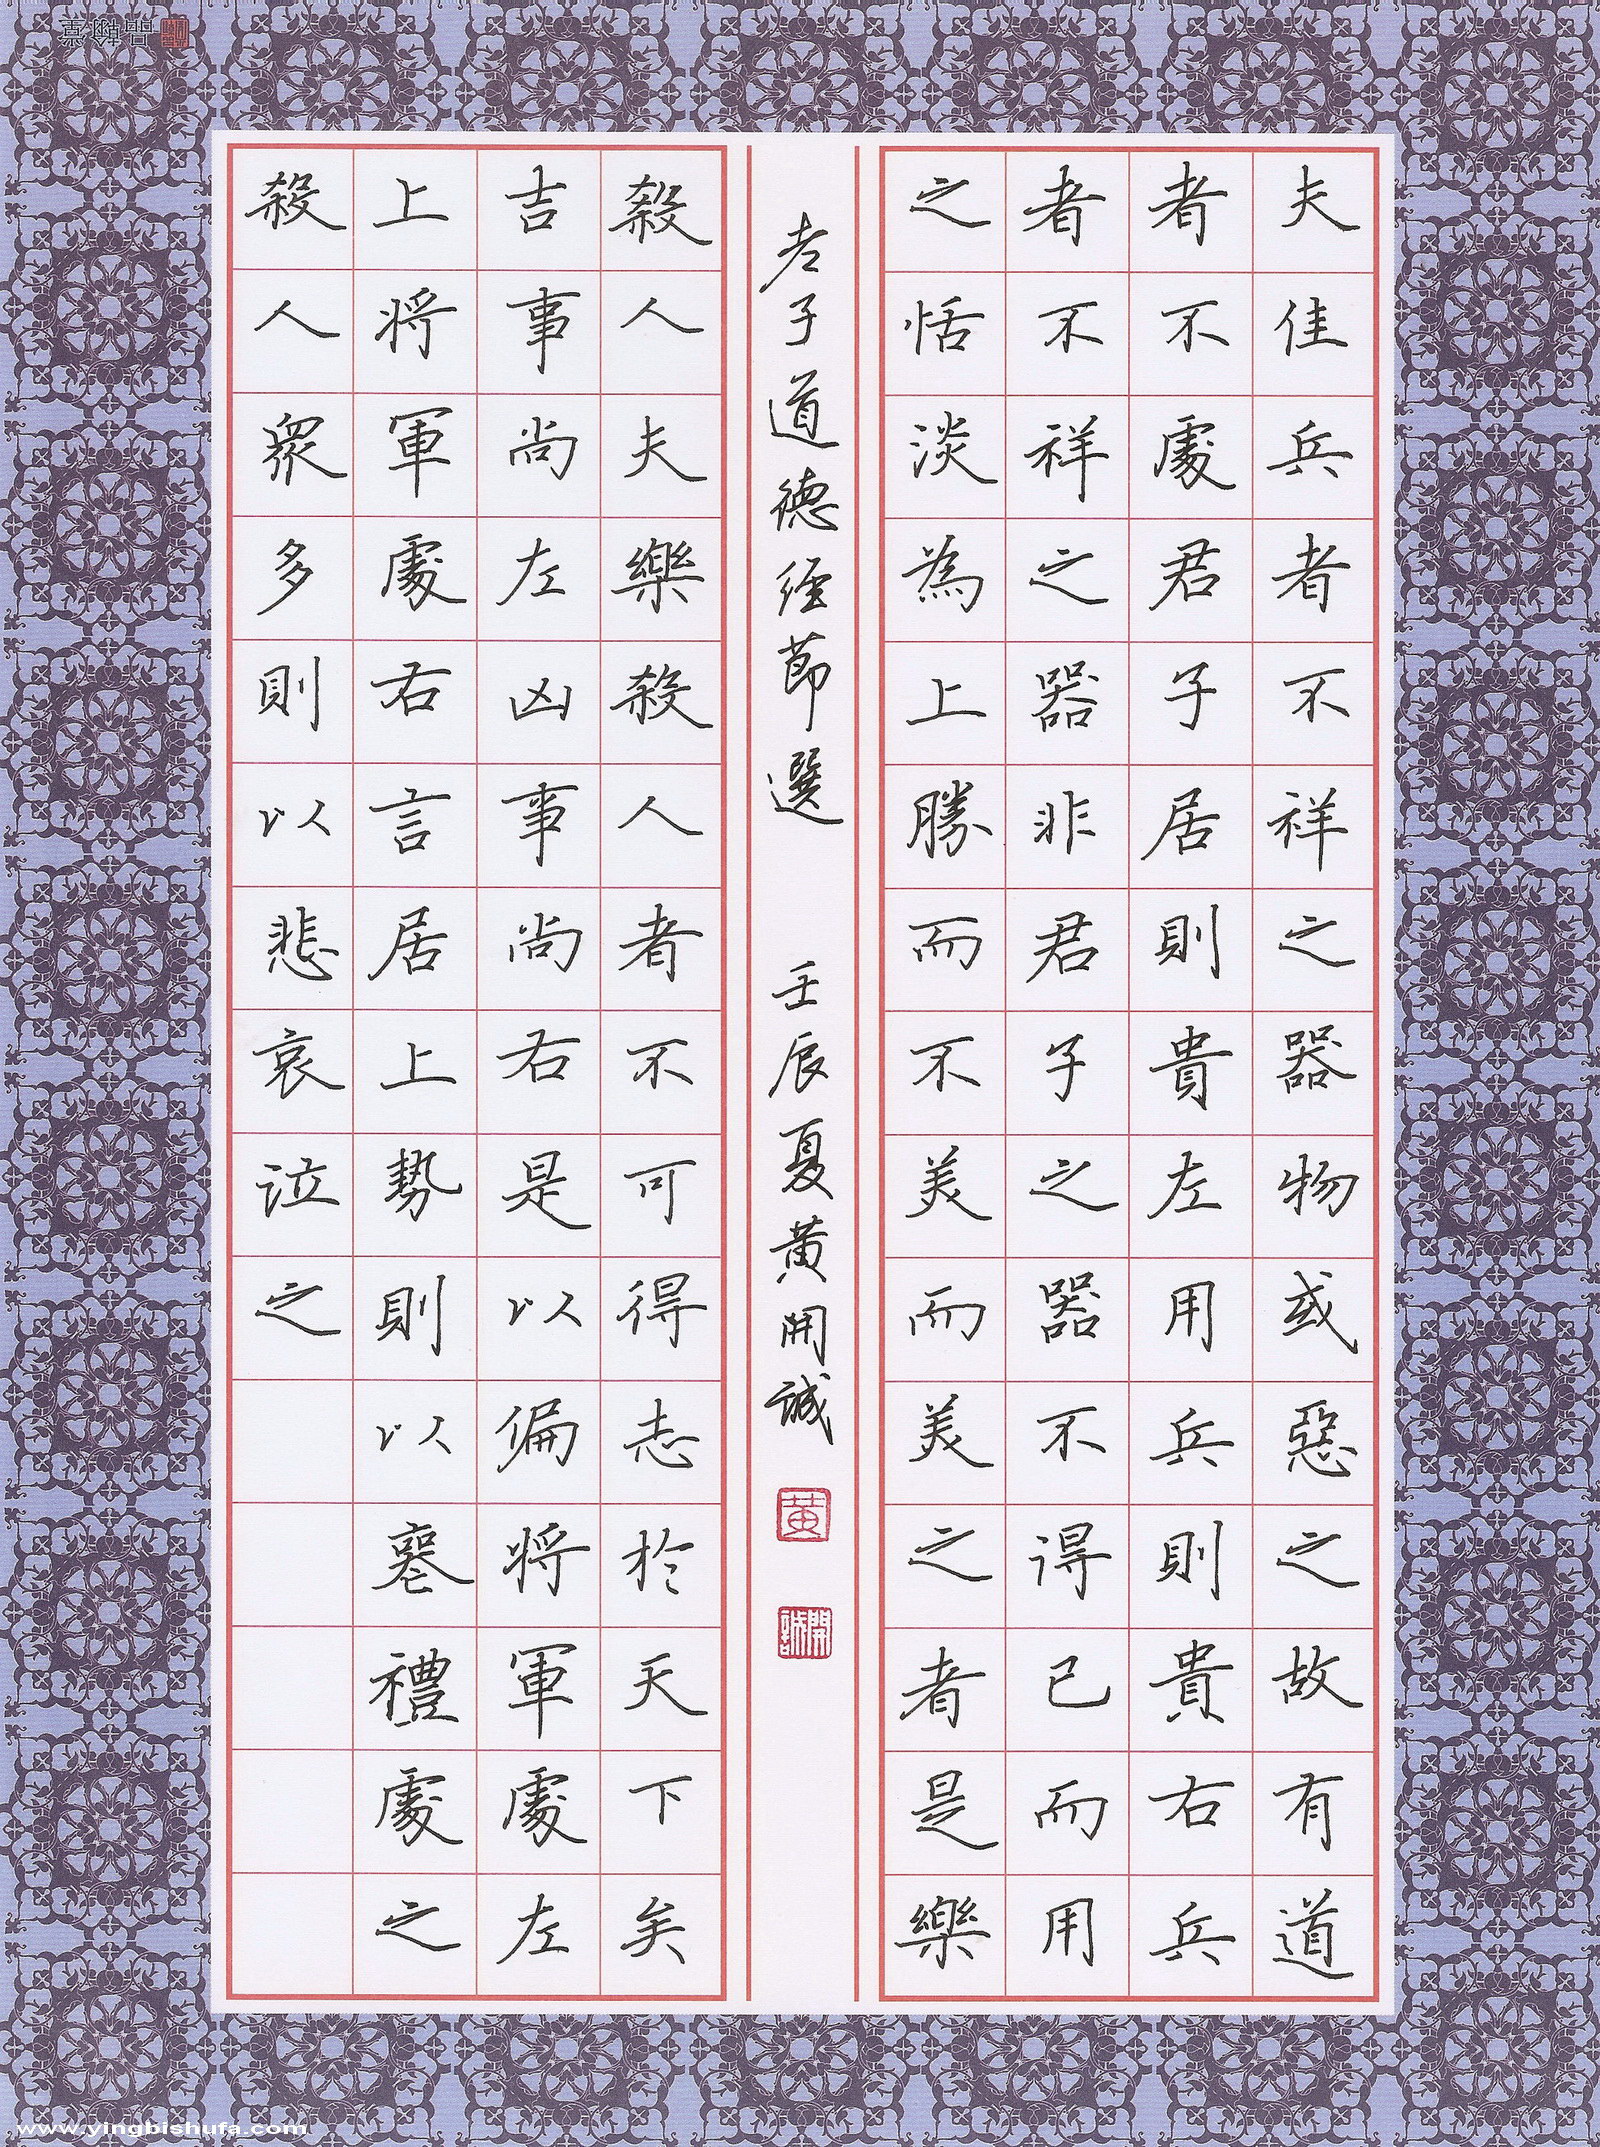 夫佳兵者不祥之器物或惡之故有道
者不處君子居則貴左用兵則貴右兵
者不祥之器非君子之器不得已而用
之恬淡為上勝而不美而美之者是樂
老子道德經節選 壬辰夏黃開誠
黃
開誠
殺人夫樂殺人者不可得志於天下矣
吉事尚左凶事尚右是以偏将軍處左
上将軍處右言居上勢則以喪禮處之
殺人眾多則以悲哀泣之
www.yingbishufa.com